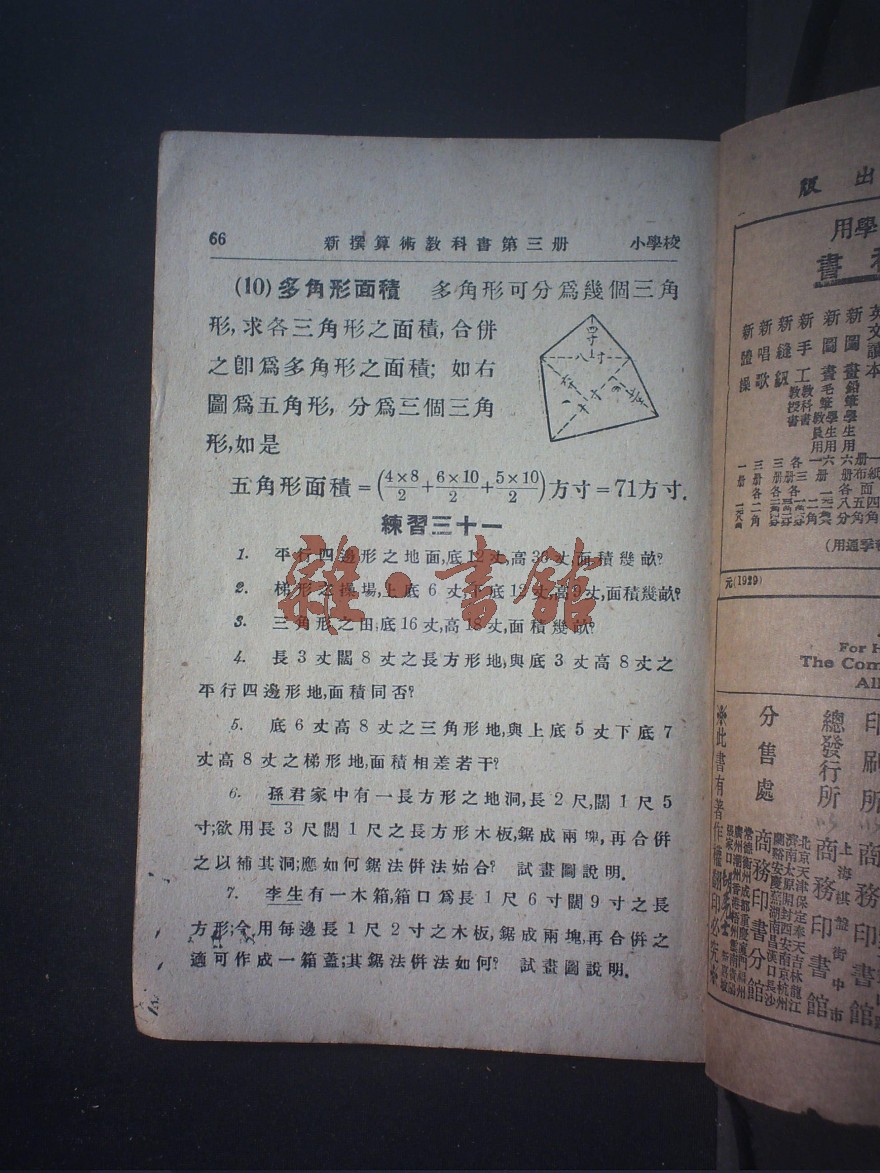 66 新撰算術教科書第三册 小學校
(10) 多角形面積 多角形可分爲幾個三角
形,求各三角形之面積,合併
之卽爲多角形之面積; 如右
圖爲五角形, 分爲三個三角
形,如是
四寸
八寸
五角形面積=(4×8/2+6×10/2+5×10/2)方寸=71方寸.
練習三十一
1. 平行四邊形之地面,底12丈,高30丈,面積幾畝?
2. 梯形之操場,上底6丈,下底12丈,高9丈,面積幾畝?
3. 三角形之田,底16丈,高18丈,面積幾畝?
4. 長3丈闊8丈之長方形地,與底3丈高8丈之
平行四邊形地,面積同否?
5. 底6丈高8丈之三角形地,與上底5丈下底7
丈高8丈之梯形地,面積相差若干?
6. 孫君家中有一長方形之地洞,長2尺,闊1尺5
寸;欲用長3尺闊1尺之長方形木板,鋸成兩塊,再合併
之以補其洞;應如何鋸法併法始合? 試畫圖說明.
7. 李生有一木箱,箱口爲長1尺6寸闊9寸之長
方形;今用每邊長1尺2寸之木板,鋸成兩塊,再合併之
適可作成一箱蓋;其鋸法併法如何? 試畫圖說明.
雜·書館
出版
學用
書
英文讀本
新圖畫 鉛筆學生用
新圖畫 毛筆教員用
新手工 教科書 教授書
新縫紉
新唱歌
新體操
(用通季
元(1929)
For H
The Com
All
印刷所 商務印書館
總發行所 上海棋盤街中市 商務印書館
分售處 商務印書分館
北京天津保定奉天吉林龍江
濟南太原開封西安南京杭州
蘭谿安慶蕪湖南昌漢口長沙
※此書有著作權翻印必究※